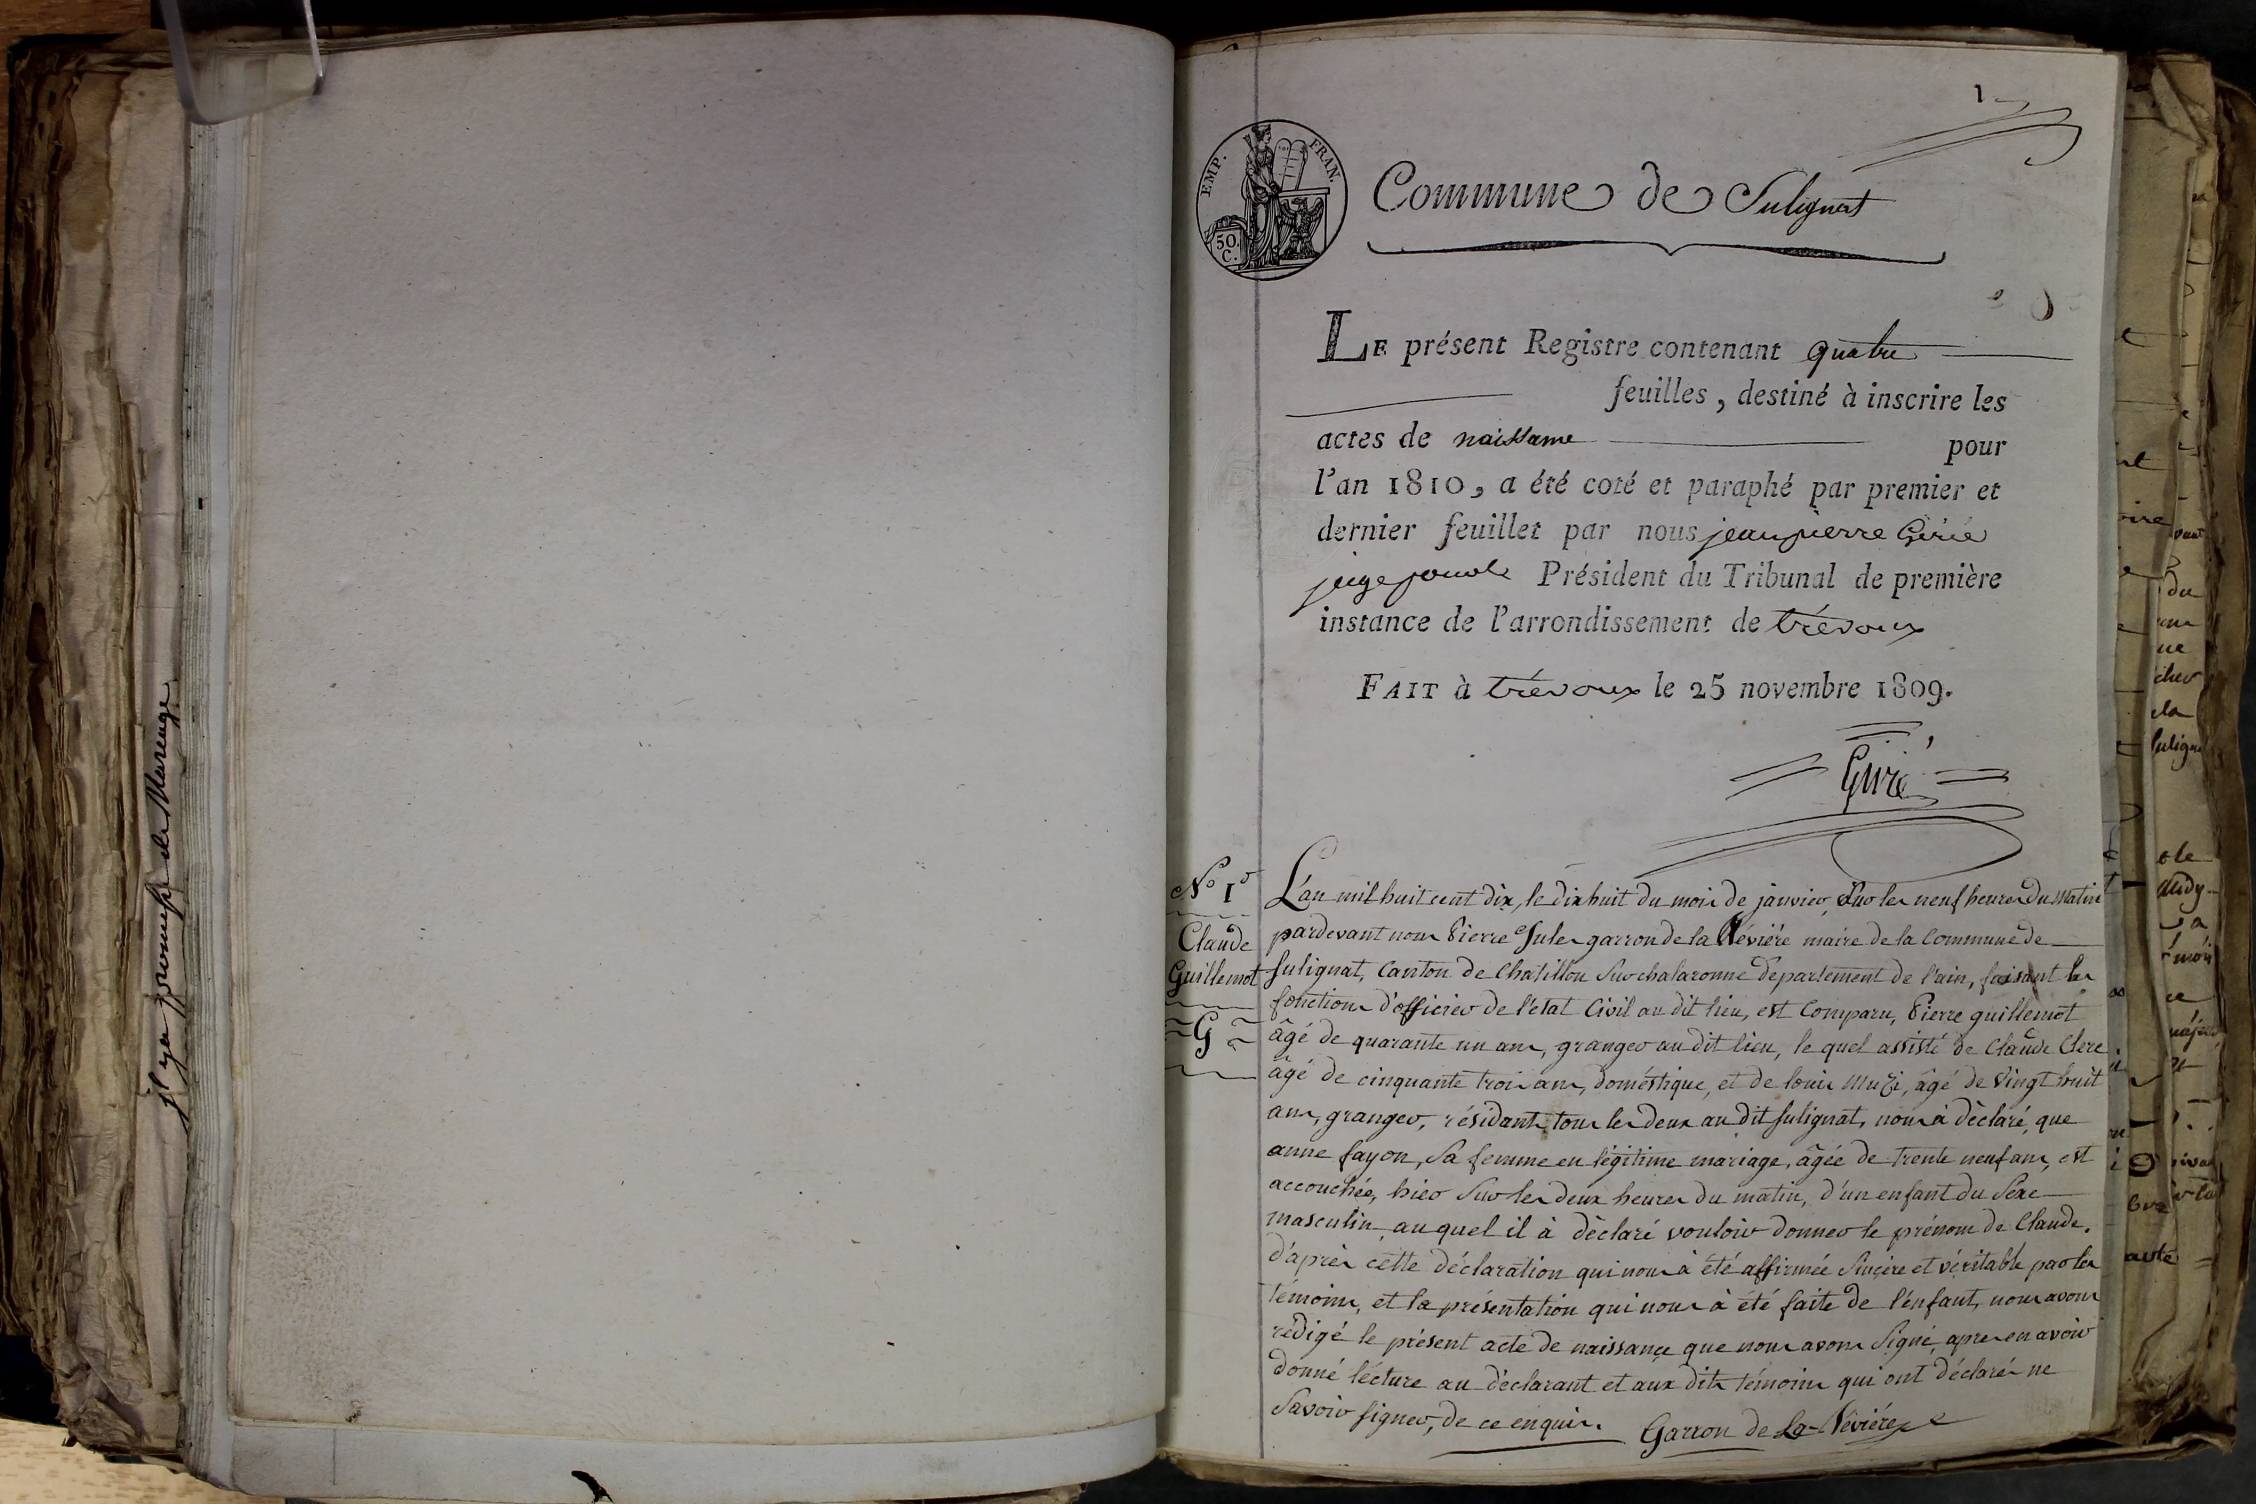 il y a promesse de mariage
1
EMP. FRAN.
50 C.
Commune de Sulignat
LE présent Registre contenant quatre
feuilles, destiné à inscrire les
actes de naissance pour
l'an 1810, a été coté et paraphé par premier et
dernier feuillet par nous jean pierre Girié
juge Président du Tribunal de première
instance de l'arrondissement de trévoux
FAIT à trévoux le 25 novembre 1809.
Girié
N° 1er
Claude
Guillemot
G
L'an mil huit cent dix, le dix huit du mois de janvier, sur les neuf heures du matin
pardevant nous Pierre Jules garron de la Bévière maire de la Commune de
Sulignat, Canton de Chatillon sur chalaronne département de l'ain, faisant les
fonctions d'officier de l'etat Civil au dit lieu, est Comparu, Pierre guillemot
âgé de quarante un ans, granger au dit lieu, le quel assisté de Claude Clerc
âgé de cinquante trois ans, doméstique, et de louis Muzi, âgé de vingt huit
ans, granger, résidants tous les deux au dit Sulignat, nous à dèclaré, que
anne fayon, sa femme en légitime mariage, âgée de trente neuf ans, est
accouchée, hier sur les deux heures du matin, d'un enfant du sexe
masculin, au quel il à dèclaré vouloir donner le prénom de Claude.
d'après cette déclaration qui nous à été affirmée sincère et véritable par les
témoins, et la présentation qui nous à été faite de l'énfant, nous avons
rédigé le présent acte de naissance que nous avons signé, apres en avoir
donné lécture au dèclarant et aux dits témoins qui ont déclarés ne
savoir signer, de ce enquis. Garron de La Bévière